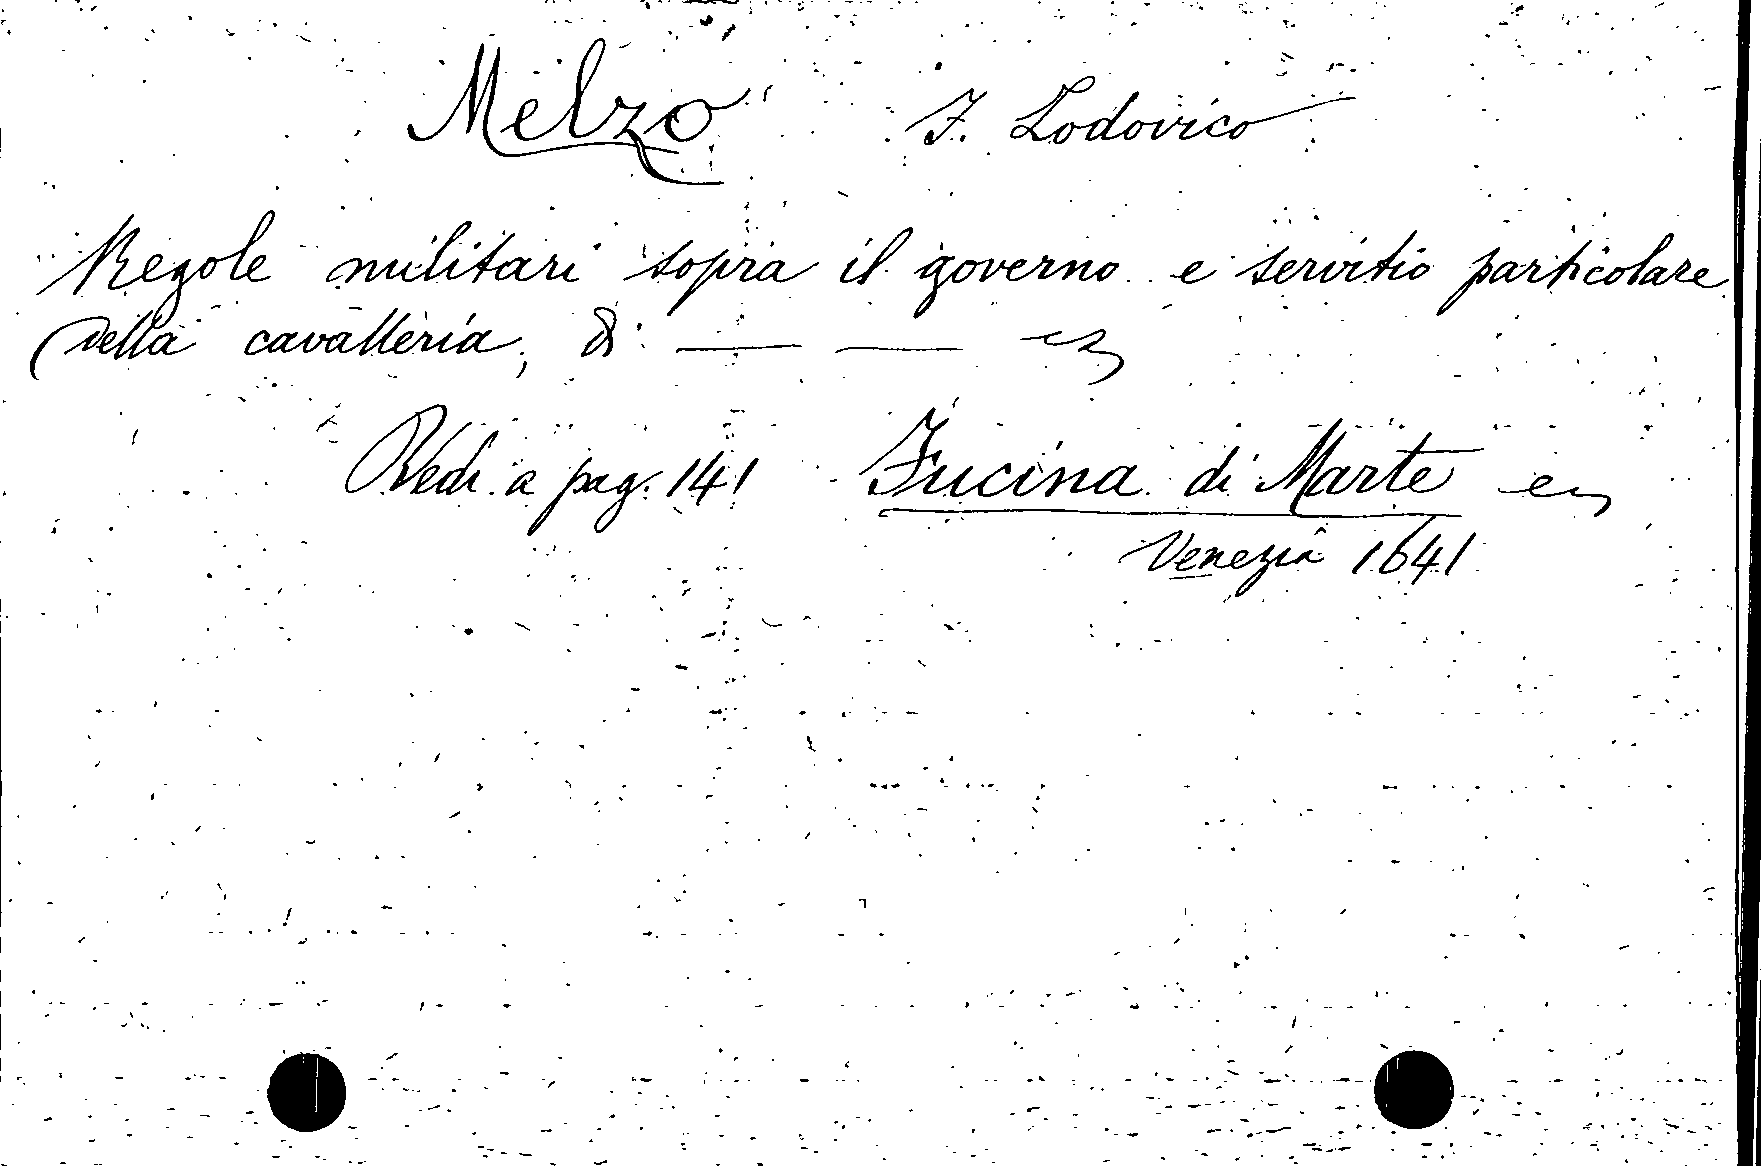 Melzo F. Lodovico
Regole militari sopra il governo e servitio particolare
della cavalleria, di — — ec
Vedi a pag. 141 Fucina di Marte ec
Venezia 1641